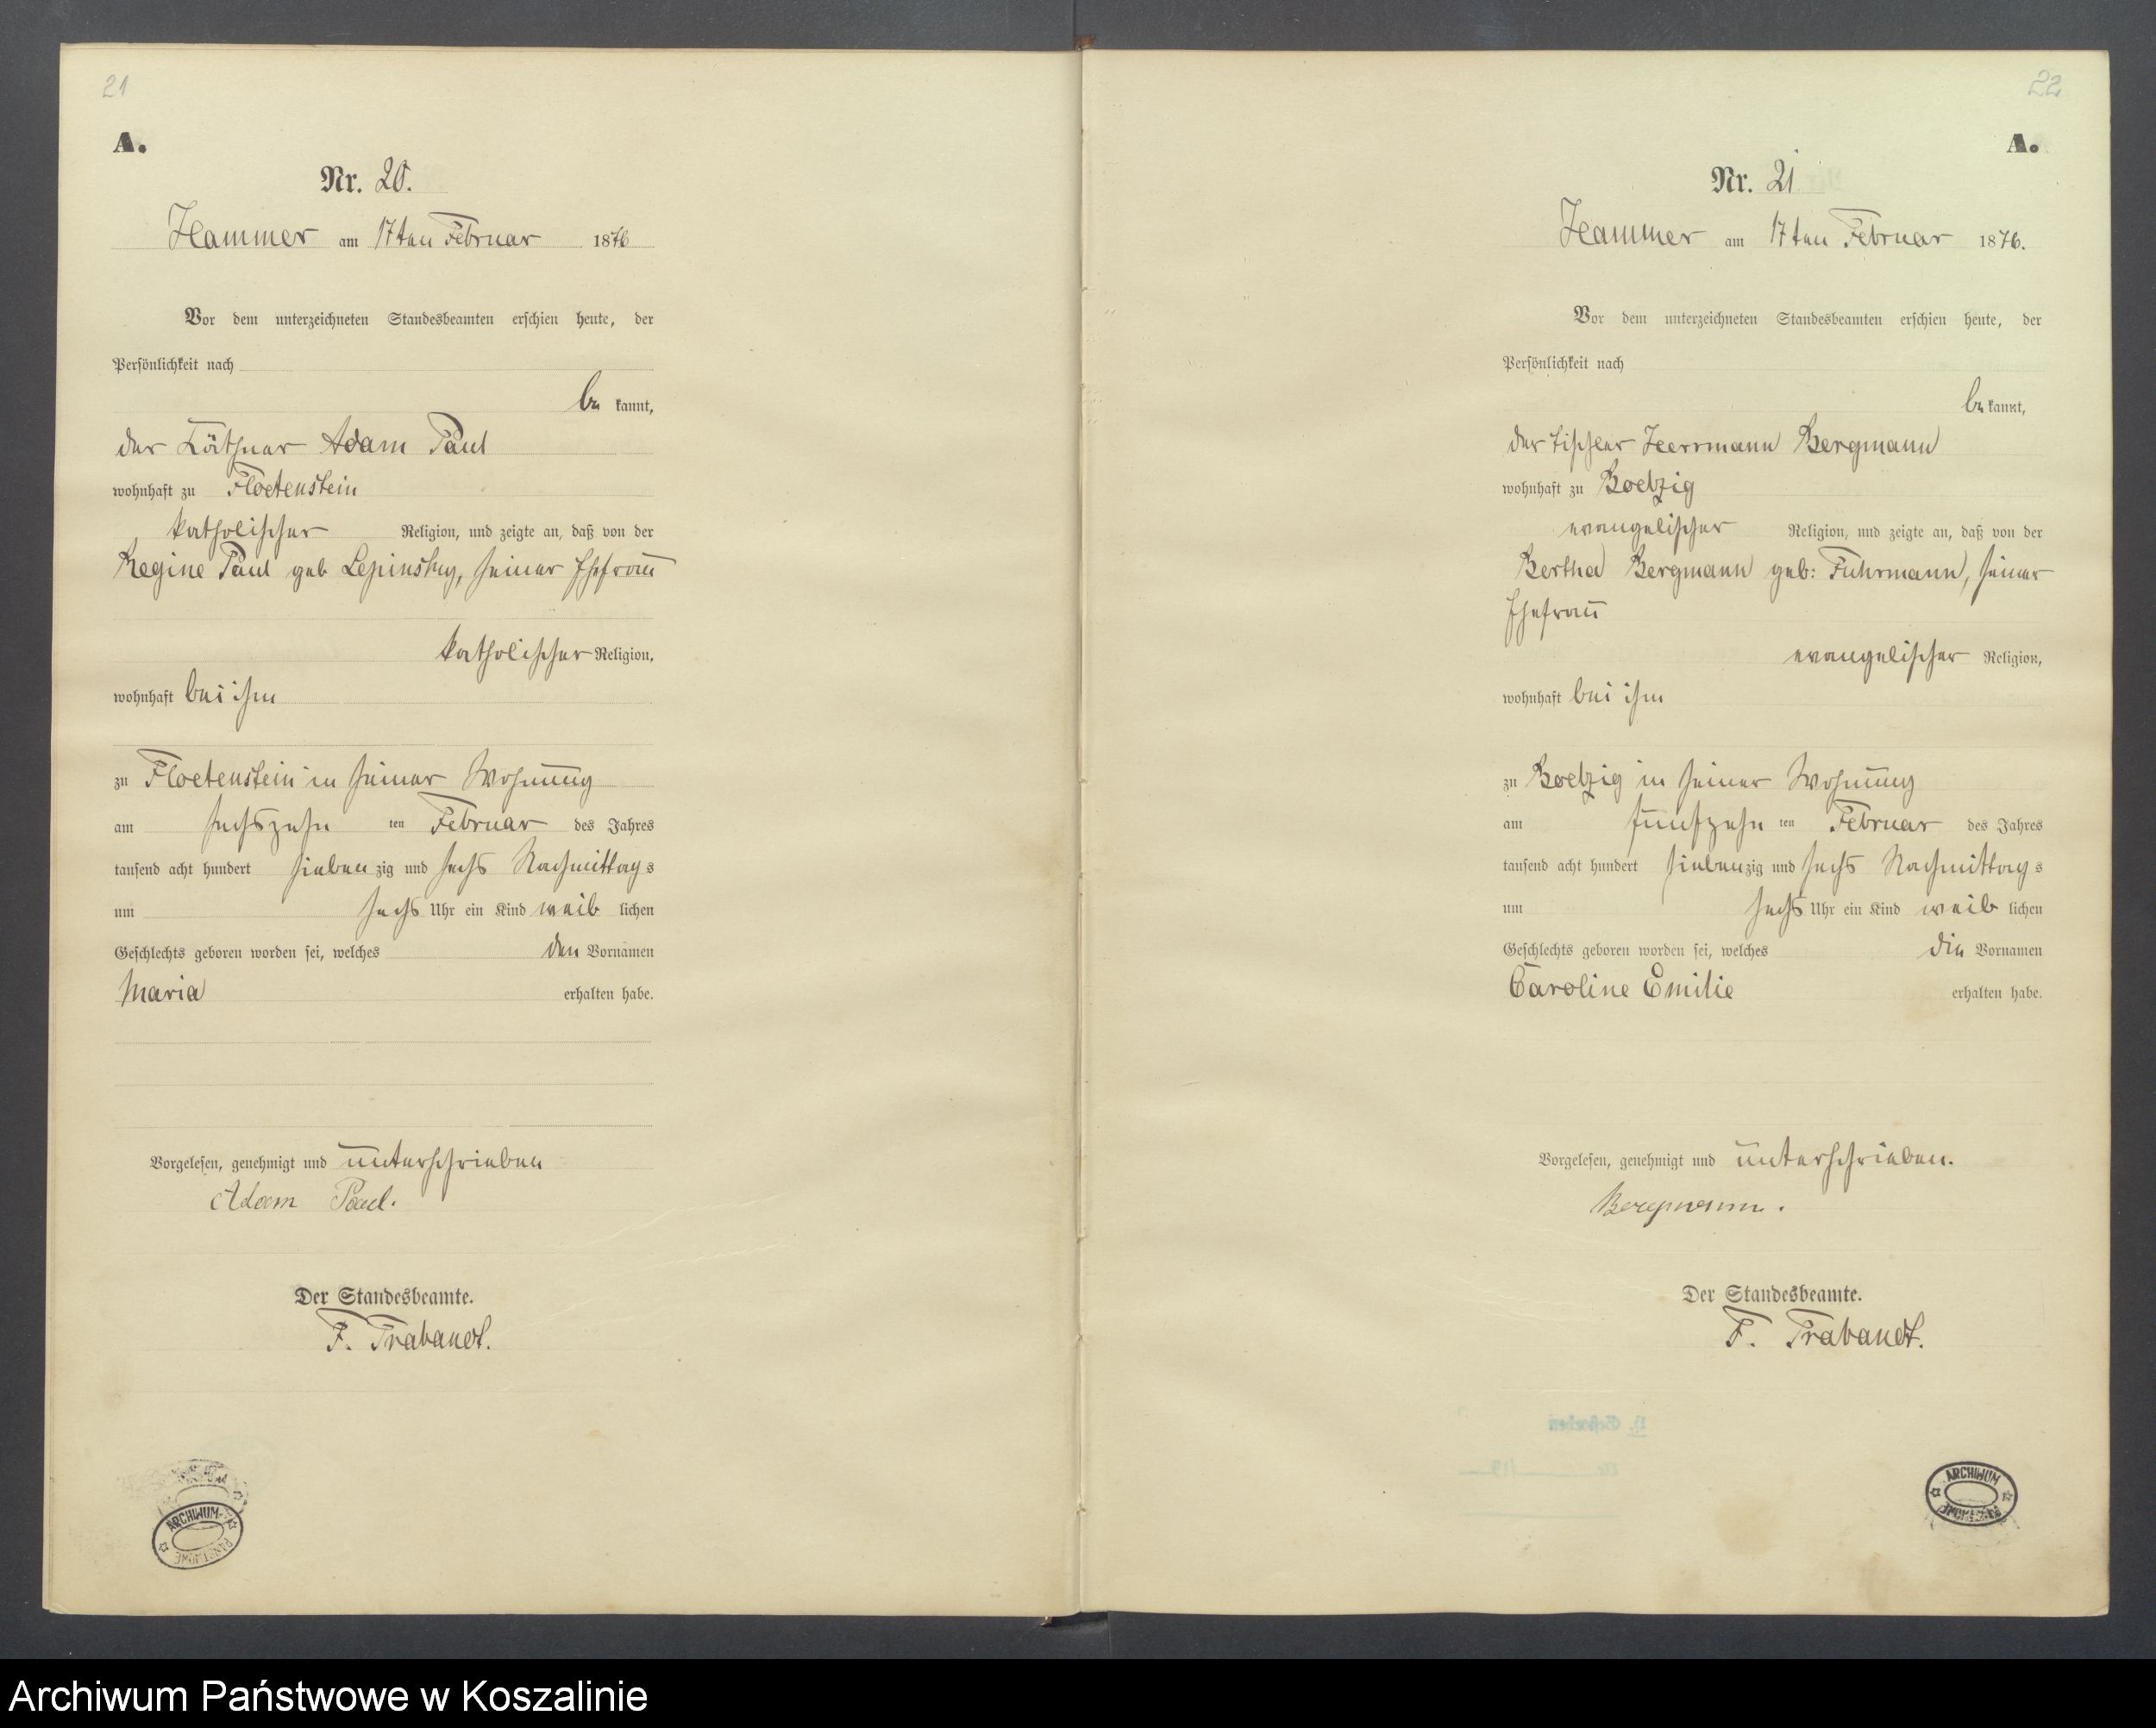 21
A.
Nr. 20.
Hammer am 17ten Februar 1876
Vor dem unterzeichneten Standesbeamten erschien heute, der
Persönlichkeit nach
be kannt,
der Käthner Adam Paul
wohnhaft zu Floetenstein
katholischer Religion, und zeigte an, daß von der
Regine Paul geb Lepinsky, seiner Ehefrau
katholischer Religion,
wohnhaft bei ihm
zu Floetenstein in seiner Wohnung
am sechszehn ten Februar des Jahres
tausend acht hundert sieben zig und sechs Nachmittag s
um sechs Uhr ein Kind weib lichen
Geschlechts geboren worden sei, welches den Vornamen
Maria erhalten habe.
Vorgelesen, genehmigt und unterschrieben
Adam Paul.
Der Standesbeamte.
F. Trabandt.
ARCHIWUM
PAŃSTWOWE
22
A.
Nr. 21
Hammer am 17ten Februar 1876.
Vor dem unterzeichneten Standesbeamten erschien heute, der
Persönlichkeit nach
be kannt,
der Tischler Herrmann Bergmann
wohnhaft zu Boelzig
evangelischer Religion, und zeigte an, daß von der
Bertha Bergmann geb: Fuhrmann, seiner
Ehefrau
evangelischer Religion,
wohnhaft bei ihm
zu Boelzig in seiner Wohnung
am fünfzehn ten Februar des Jahres
tausend acht hundert sieben zig und sechs Nachmittag s
um sechs Uhr ein Kind weib lichen
Geschlechts geboren worden sei, welches die Vornamen
Caroline Emilie erhalten habe.
Vorgelesen, genehmigt und unterschrieben.
Bergmann.
Der Standesbeamte.
F. Trabandt.
ARCHIWUM
Archiwum Państwowe w Koszalinie